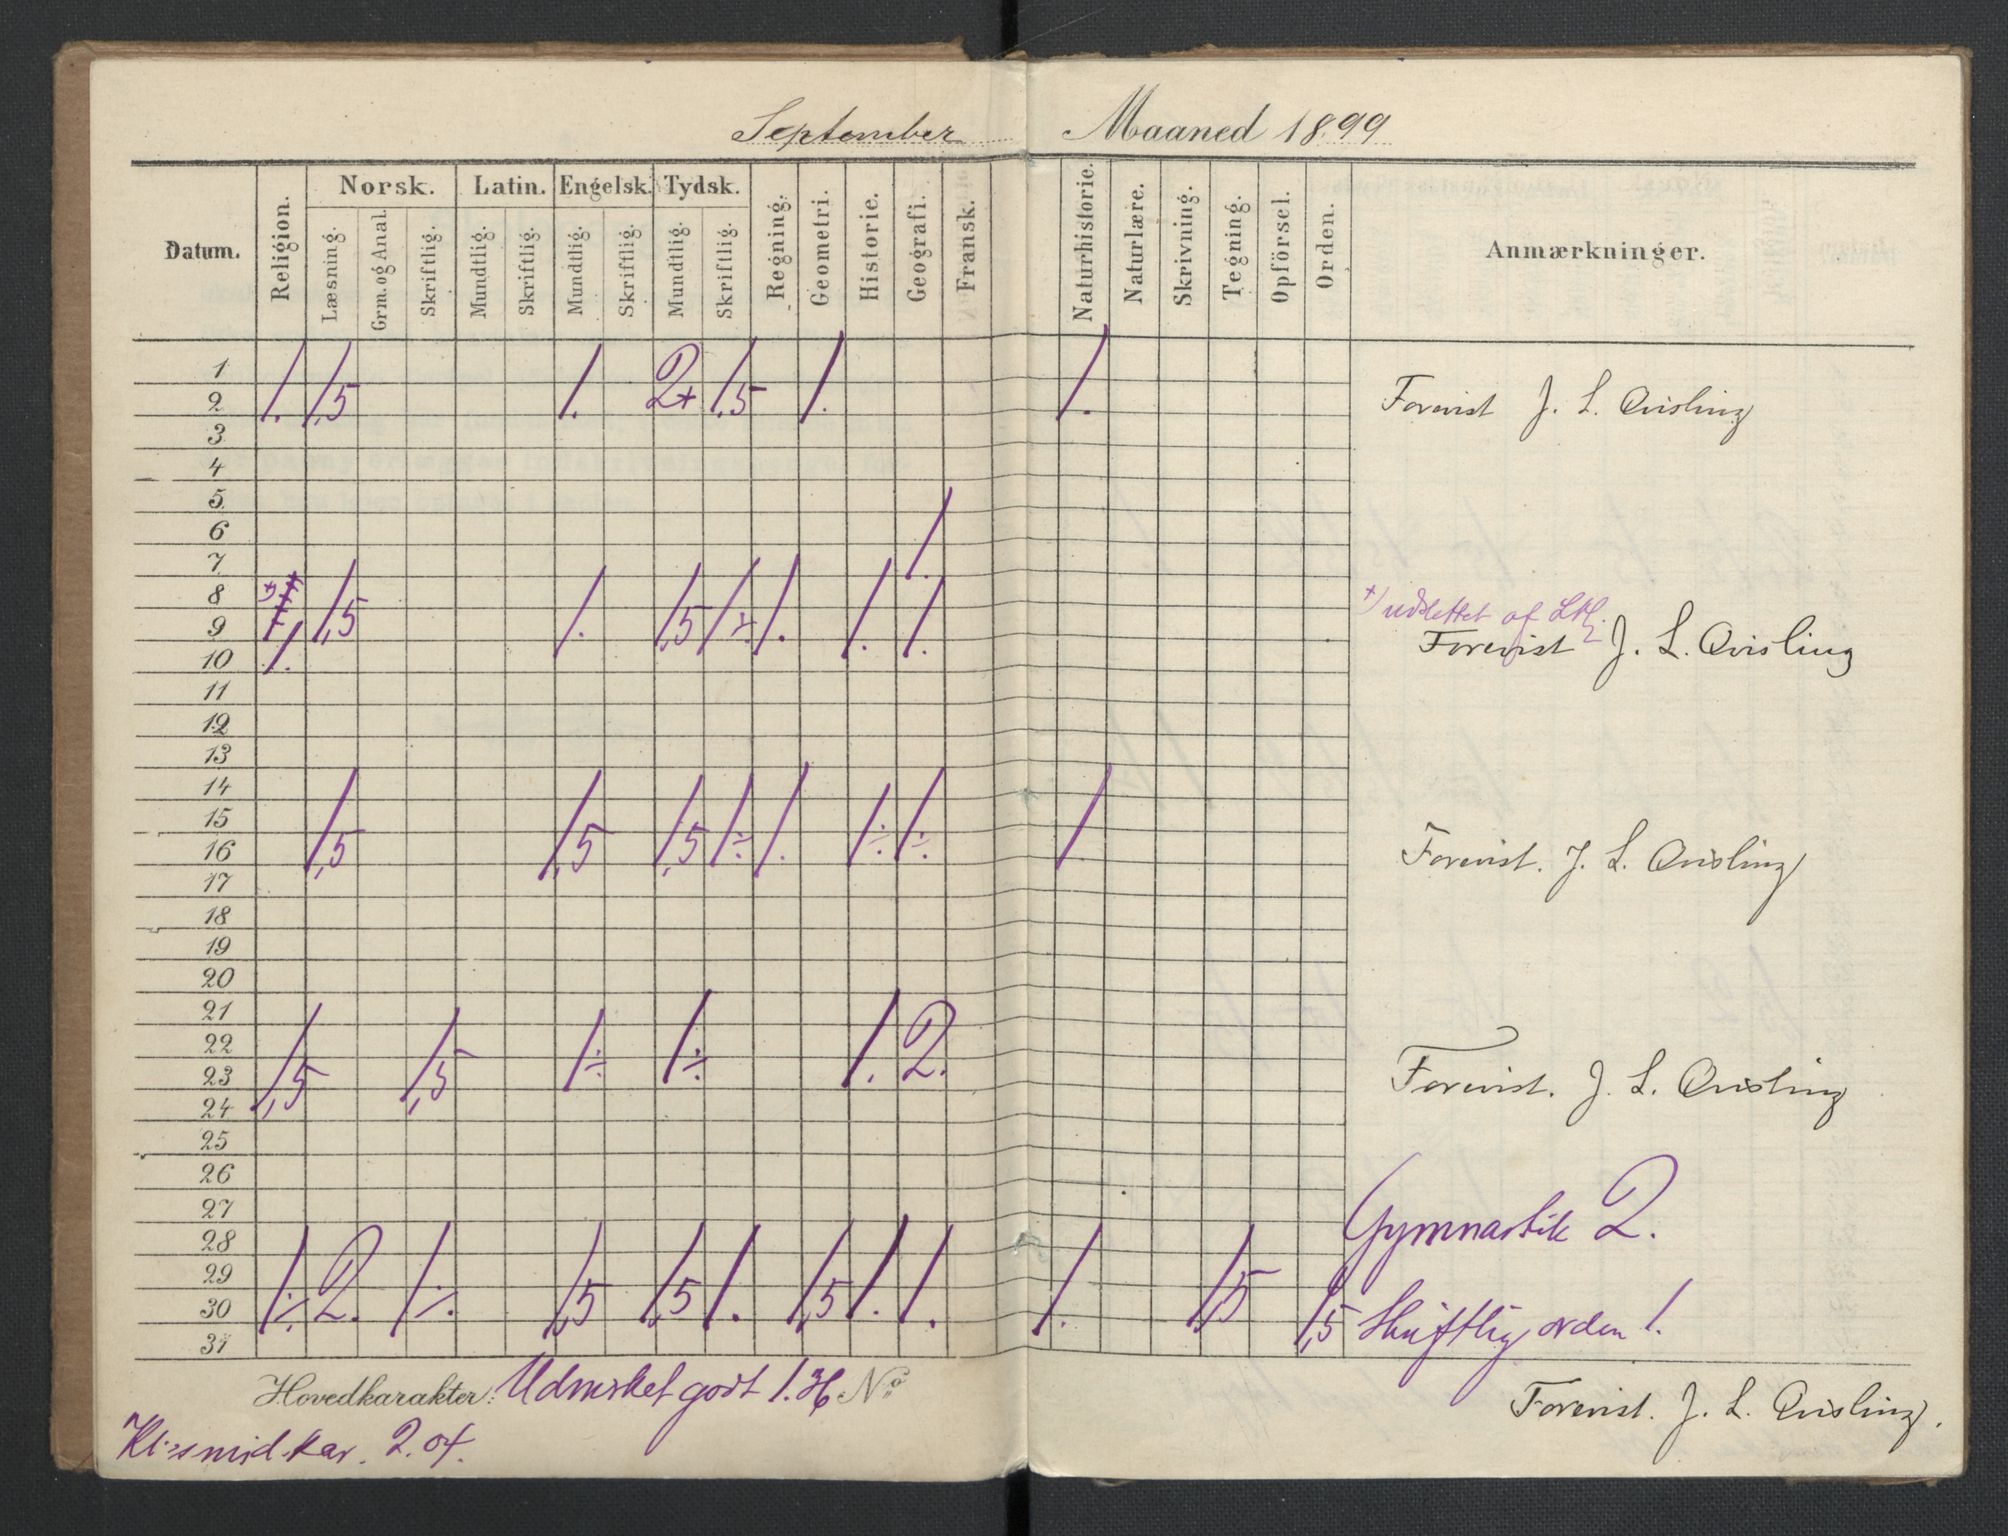 September Maaned 1899
Datum. Religion. Norsk. Latin. Engelsk. Tydsk. Regning. Geometri. Historie. Geografi. Fransk. Naturhistorie. Naturlære. Skrivning. Tegning. Opförsel. Orden. Anmærkninger.
Læsning. Grm. og Anal. Skriftlig. Mundtlig. Skriftlig. Mundtlig. Skriftlig. Mundtlig. Skriftlig.
1
2 1. 1,5 1. 2+ 1,5 1. 1. Forevist J. L. Qvisling
3
4
5
6
7 1.
8 +)
9 1,5 1. 1,5 1÷ 1. 1. 1. +) udslettet af
10 1. Forevist J. L. Qvisling
11
12
13
14
15
16 1,5 1,5 1,5 1÷ 1. 1÷ 1÷ 1 Forevist. J. L. Qvisling
17
18
19
20
21
22
23 1,5 1,5 1÷ 1÷ 1. 2. Forevist. J. L. Qvisling
24
25
26
27
28 Gymnastik 2.
29
30 1÷ 2. 1÷. 1,5 1,5 1. 1,5 1. 1. 1. 1,5 1,5 Skriftlig orden 1.
31
Hovedkarakter: Udmerket godt 1.36 No
Forevist. J. L. Qvisling.
Kl:smid.kar. 2.04.